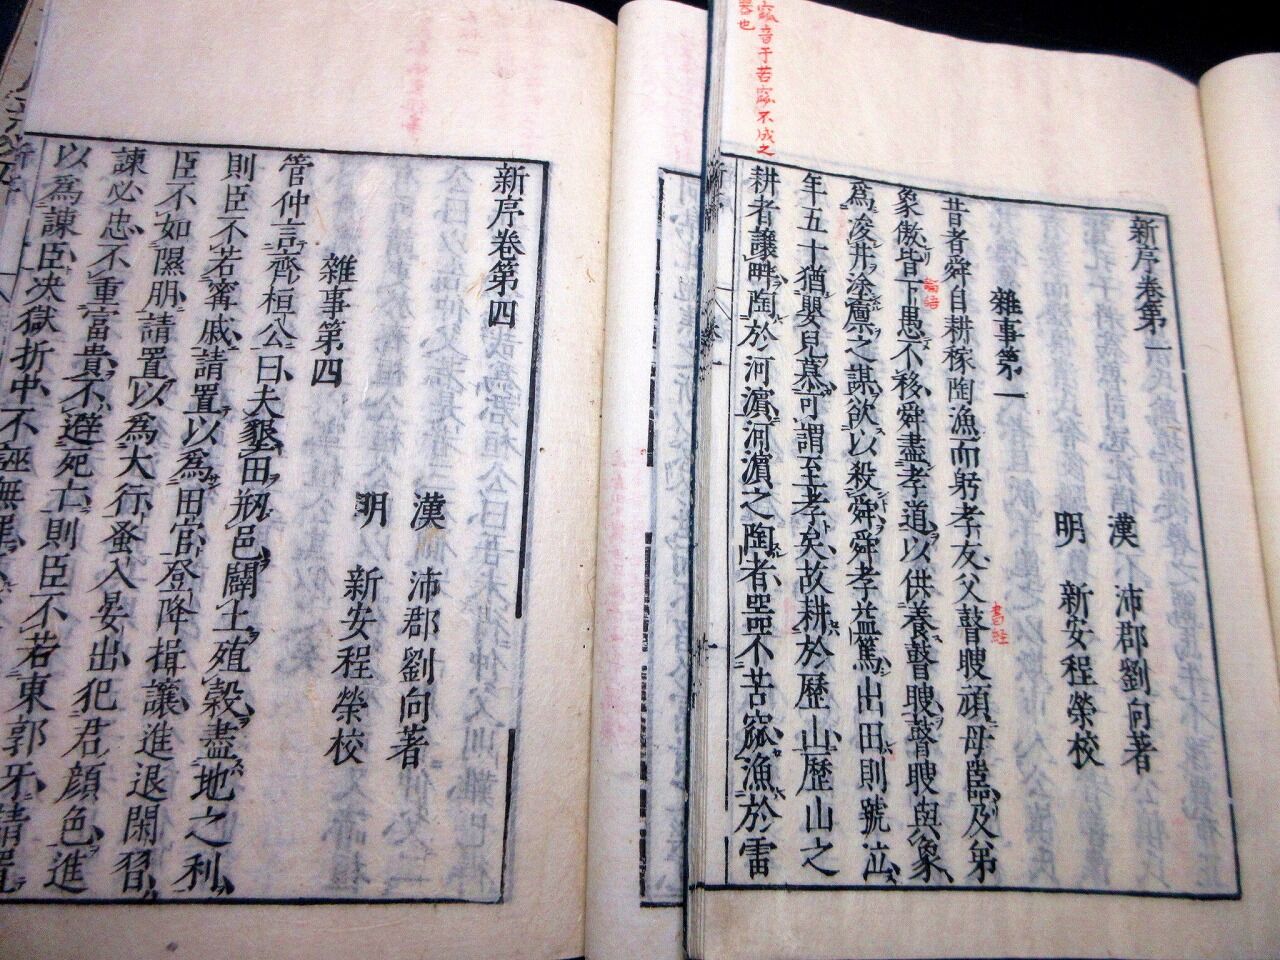 新序卷第一
漢 沛郡劉向著
明 新安程榮校
雜事第一
昔者舜自耕稼陶漁而躬孝友父瞽瞍頑母嚚及弟
象傲皆下愚不移舜盡孝道以供養瞽瞍瞽瞍與象
爲浚井塗廩之謀欲以殺舜舜孝益篤出田則號泣
年五十猶嬰兒慕可謂至孝矣故耕於歷山歷山之
耕者讓畔陶於河濵河濵之陶者器不苦窳漁於雷
書経
論語
窳音于苦窳不成之
器也
新序卷第四
漢 沛郡劉向著
明 新安程榮校
雜事第四
管仲言齊桓公曰夫墾田刱邑闢土殖穀盡地之利
則臣不若甯戚請置以爲田官登降揖讓進退閑習
臣不如隰朋請置以爲大行蚤入晏出犯君顏色進
諫必忠不重富貴不避死亡則臣不若東郭牙請置
以爲諫臣决獄折中不誣無罪